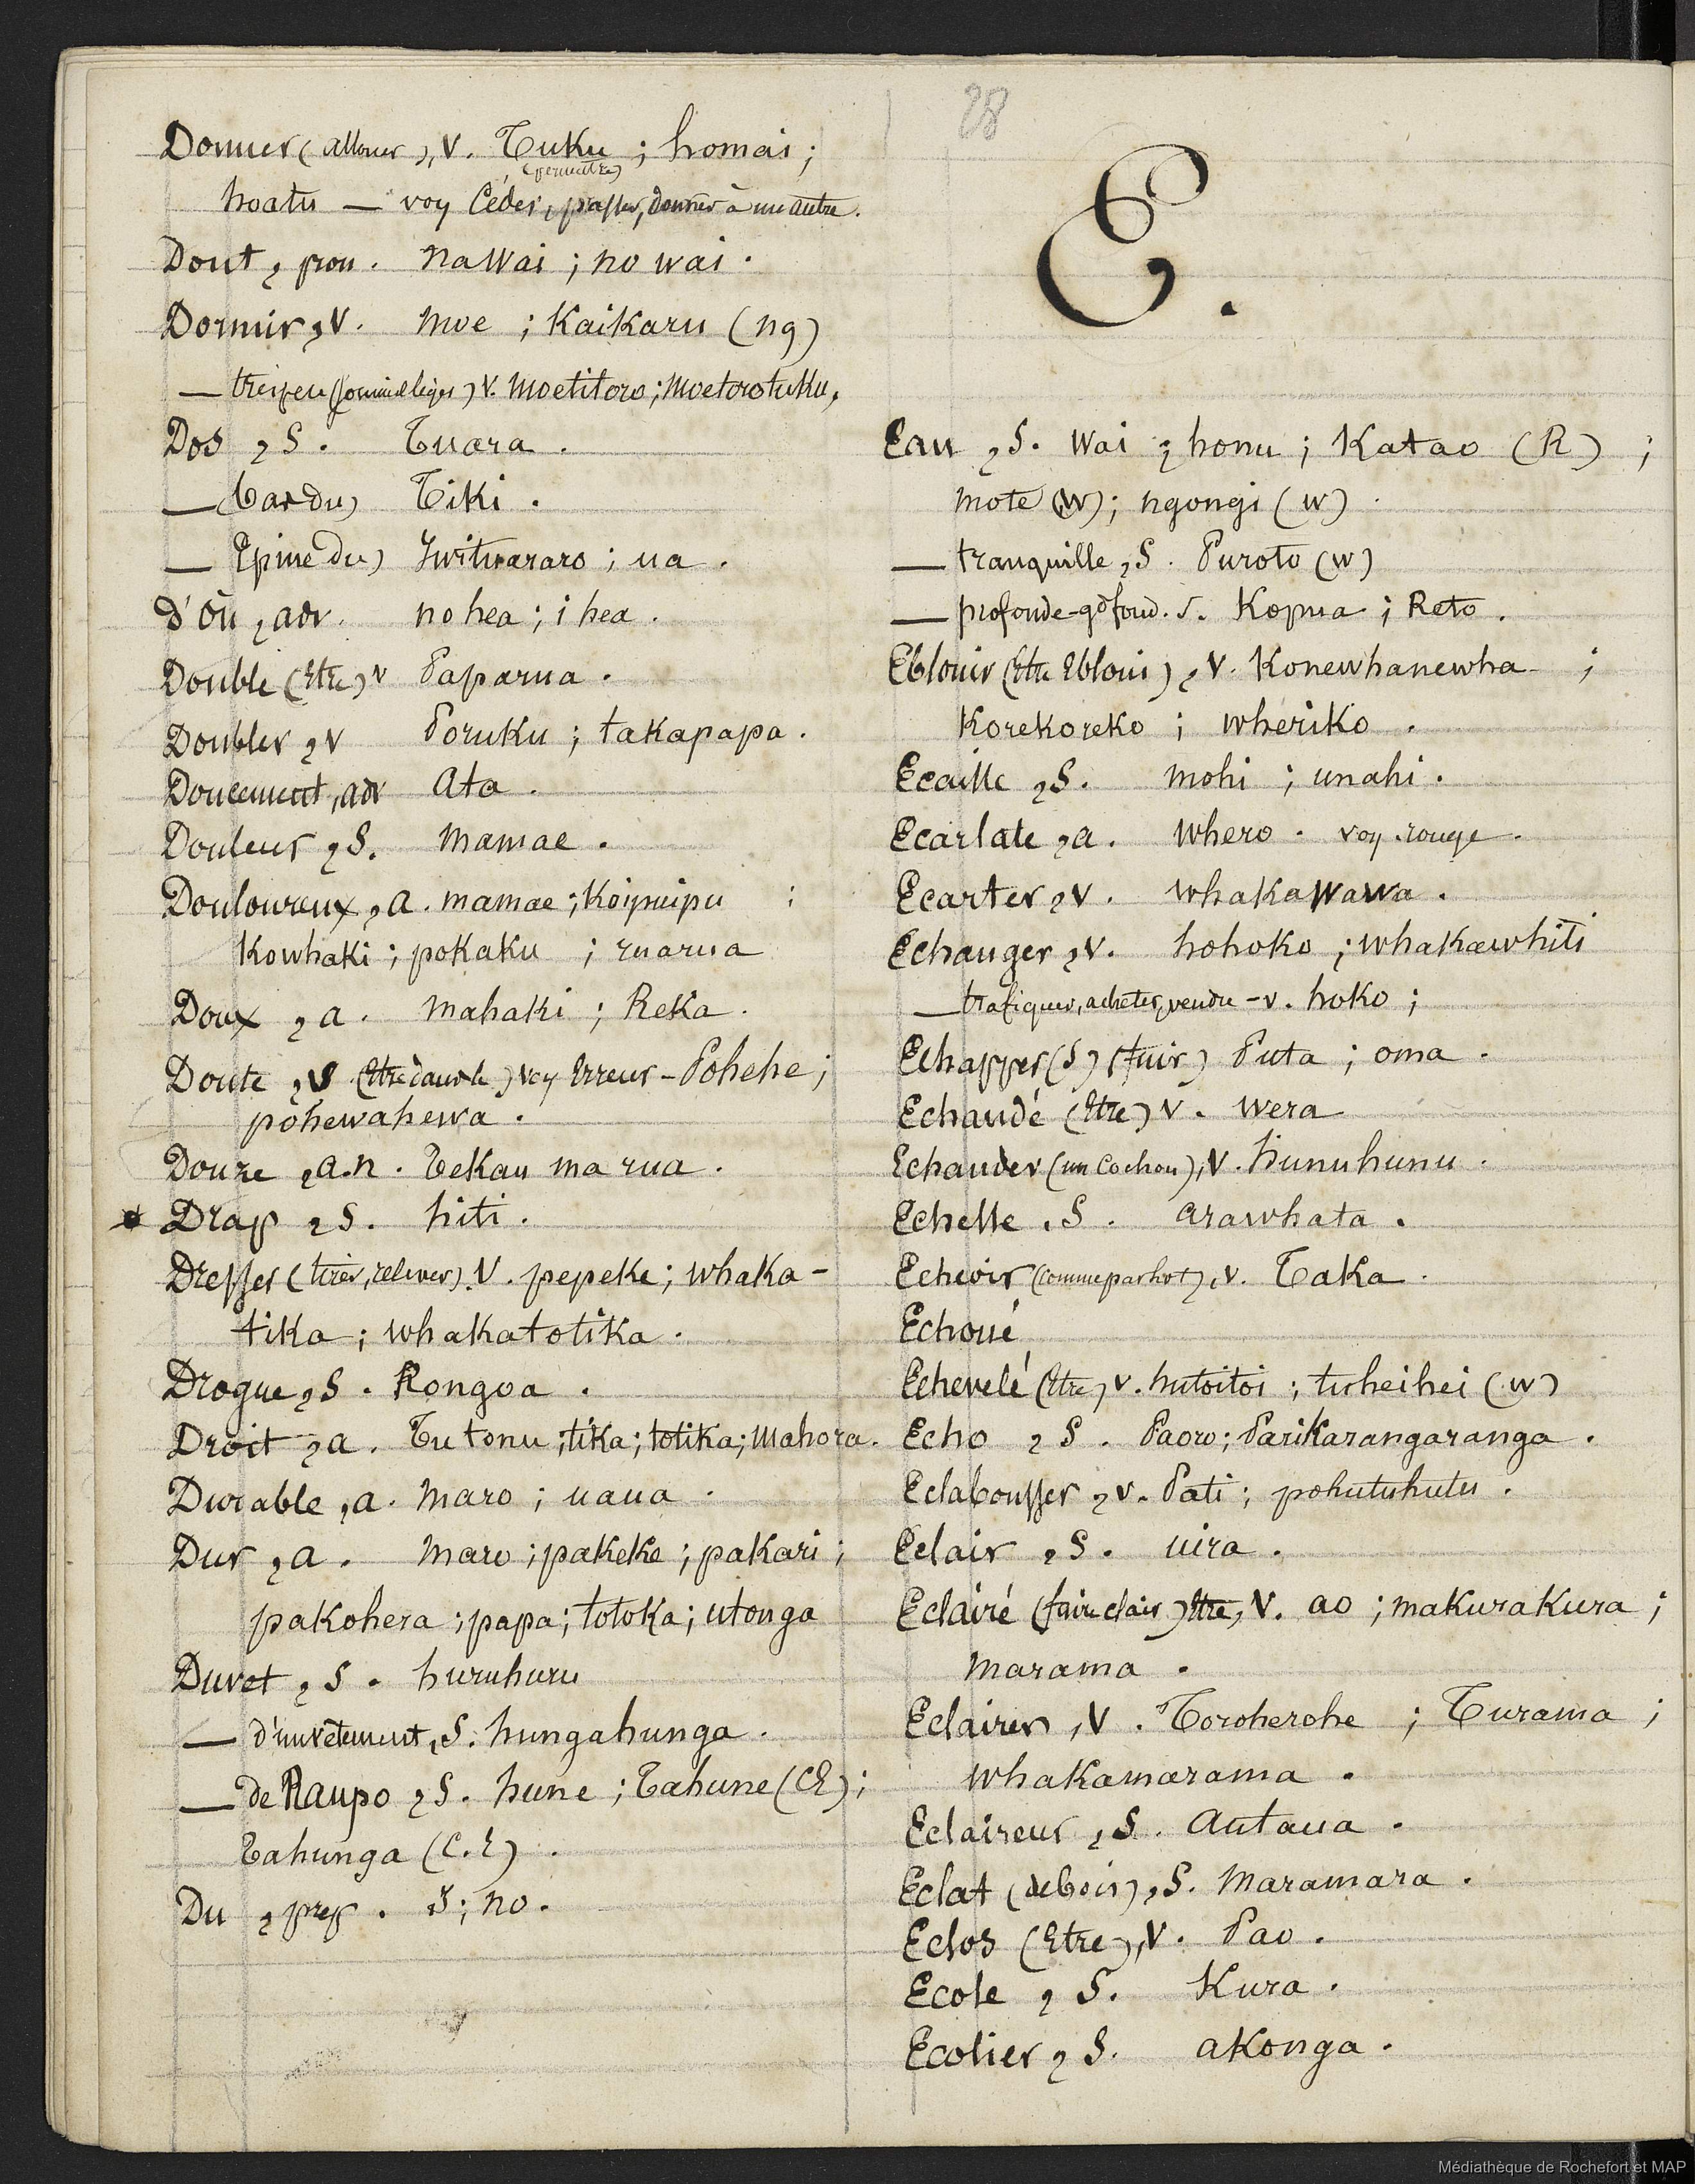 28
Donner (allouer), v. Tuku ; homai ;
(permettre)
hoatu — voy Céder, passer, donner à un autre.
Dont, pron. na wai ; no wai.
Dormir, v. Moe ; Kaikaru (ng)
— très peu (sommeil léger) v. Moetitoro ; Moetorotuku,
Dos, S. Tuara.
— (bas du) Tiki.
— Epine du) Iwituararo ; ua.
d'où, adv. no hea ; i hea.
Double (Etre) v Paparua.
Doubler, v Poruku ; takapapa.
Doucement, adv Ata.
Douleur, S. Mamae.
Douloureux, a. mamae ; Koipuipu ;
Kowhaki ; pokaku ; ruarua
Doux, a. Mahaki ; Reka.
Doute, S (Etre dans le) voy Erreur - Pohehe ;
pohewahewa.
Douze, a.n. Tekau ma rua.
Drap, S. hiti.
Dresser (tirer, relever). V. pepeke ; whaka-
tika ; whakatotika.
Drogue, S. Rongoa.
Droit, a. Tu tonu ; tika ; totika ; Mahora.
Durable, a. Maro ; uaua.
Dur, a. Maro ; pakeke ; pakari ;
pakohera ; papa ; totoka ; utonga
Duvet, S. huruhuru
— d'un vêtement, S. hungahunga.
— de Raupo, S. hune ; Tahune (CE) ;
Tahunga (C.E).
Du, prep. I ; no.
E.
Eau, S. Wai ; honu ; Katao (R) ;
Mote (W) ; ngongi (w).
— tranquille, S. Puroto (w)
— profonde - gd fond. S. Kopua ; Reto.
Eblouir (Etre Ebloui), V. Konewhanewha ;
Korekoreko ; wheriko.
Ecaille, S. mohi ; unahi.
Ecarlate, a. Whero. voy rouge.
Ecarter, v. whakawawa.
Echanger, v. hohoko ; whakawhiti
— trafiquer, acheter, vendre - v. hoko ;
Echapper (S') (fuir) Puta ; oma.
Echaudé (Etre) v. wera
Echauder (un Cochon), V. hunuhunu.
Echelle, S. arawhata.
Echeoir (comme par lot), v. Taka.
Echoué
Echevelé (Etre) v. hutoitoi ; tuheihei (w)
Echo, S. Paoro ; Parikarangaranga.
Eclabousser, v. Pati ; pohutuhutu.
Eclair, S. uira.
Eclairé (faire clair) Etre, V. ao ; makurakura ;
marama.
Eclairer, V. Toroherohe ; Turama ;
whakamarama.
Eclaireur, S. Autaua.
Eclat (de bois), S. Maramara.
Eclos (Etre), V. Pao.
Ecole, S. Kura.
Ecolier, S. akonga.
Médiathèque de Rochefort et MAP